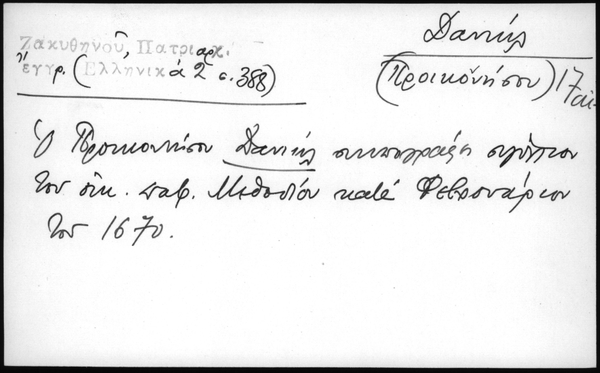 Ζακυθηνοῦ, Πατριαρχ.
ἔγγρ. (Ἑλληνικὰ 2 σ. 388)
Δανιήλ
(Προικονήσου) 17 αἰ.
Ὁ Προικονήσου Δανιήλ συνυπογράφει σιγίλλιον
τοῦ οἰκ. πατρ. Μεθοδίου κατὰ Φεβρουάριον
τοῦ 1670.